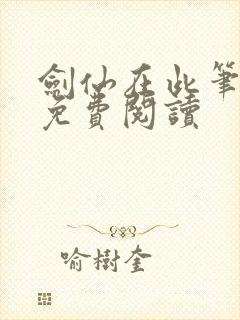 劍仙在此筆
免費閱讀
喻樹奎